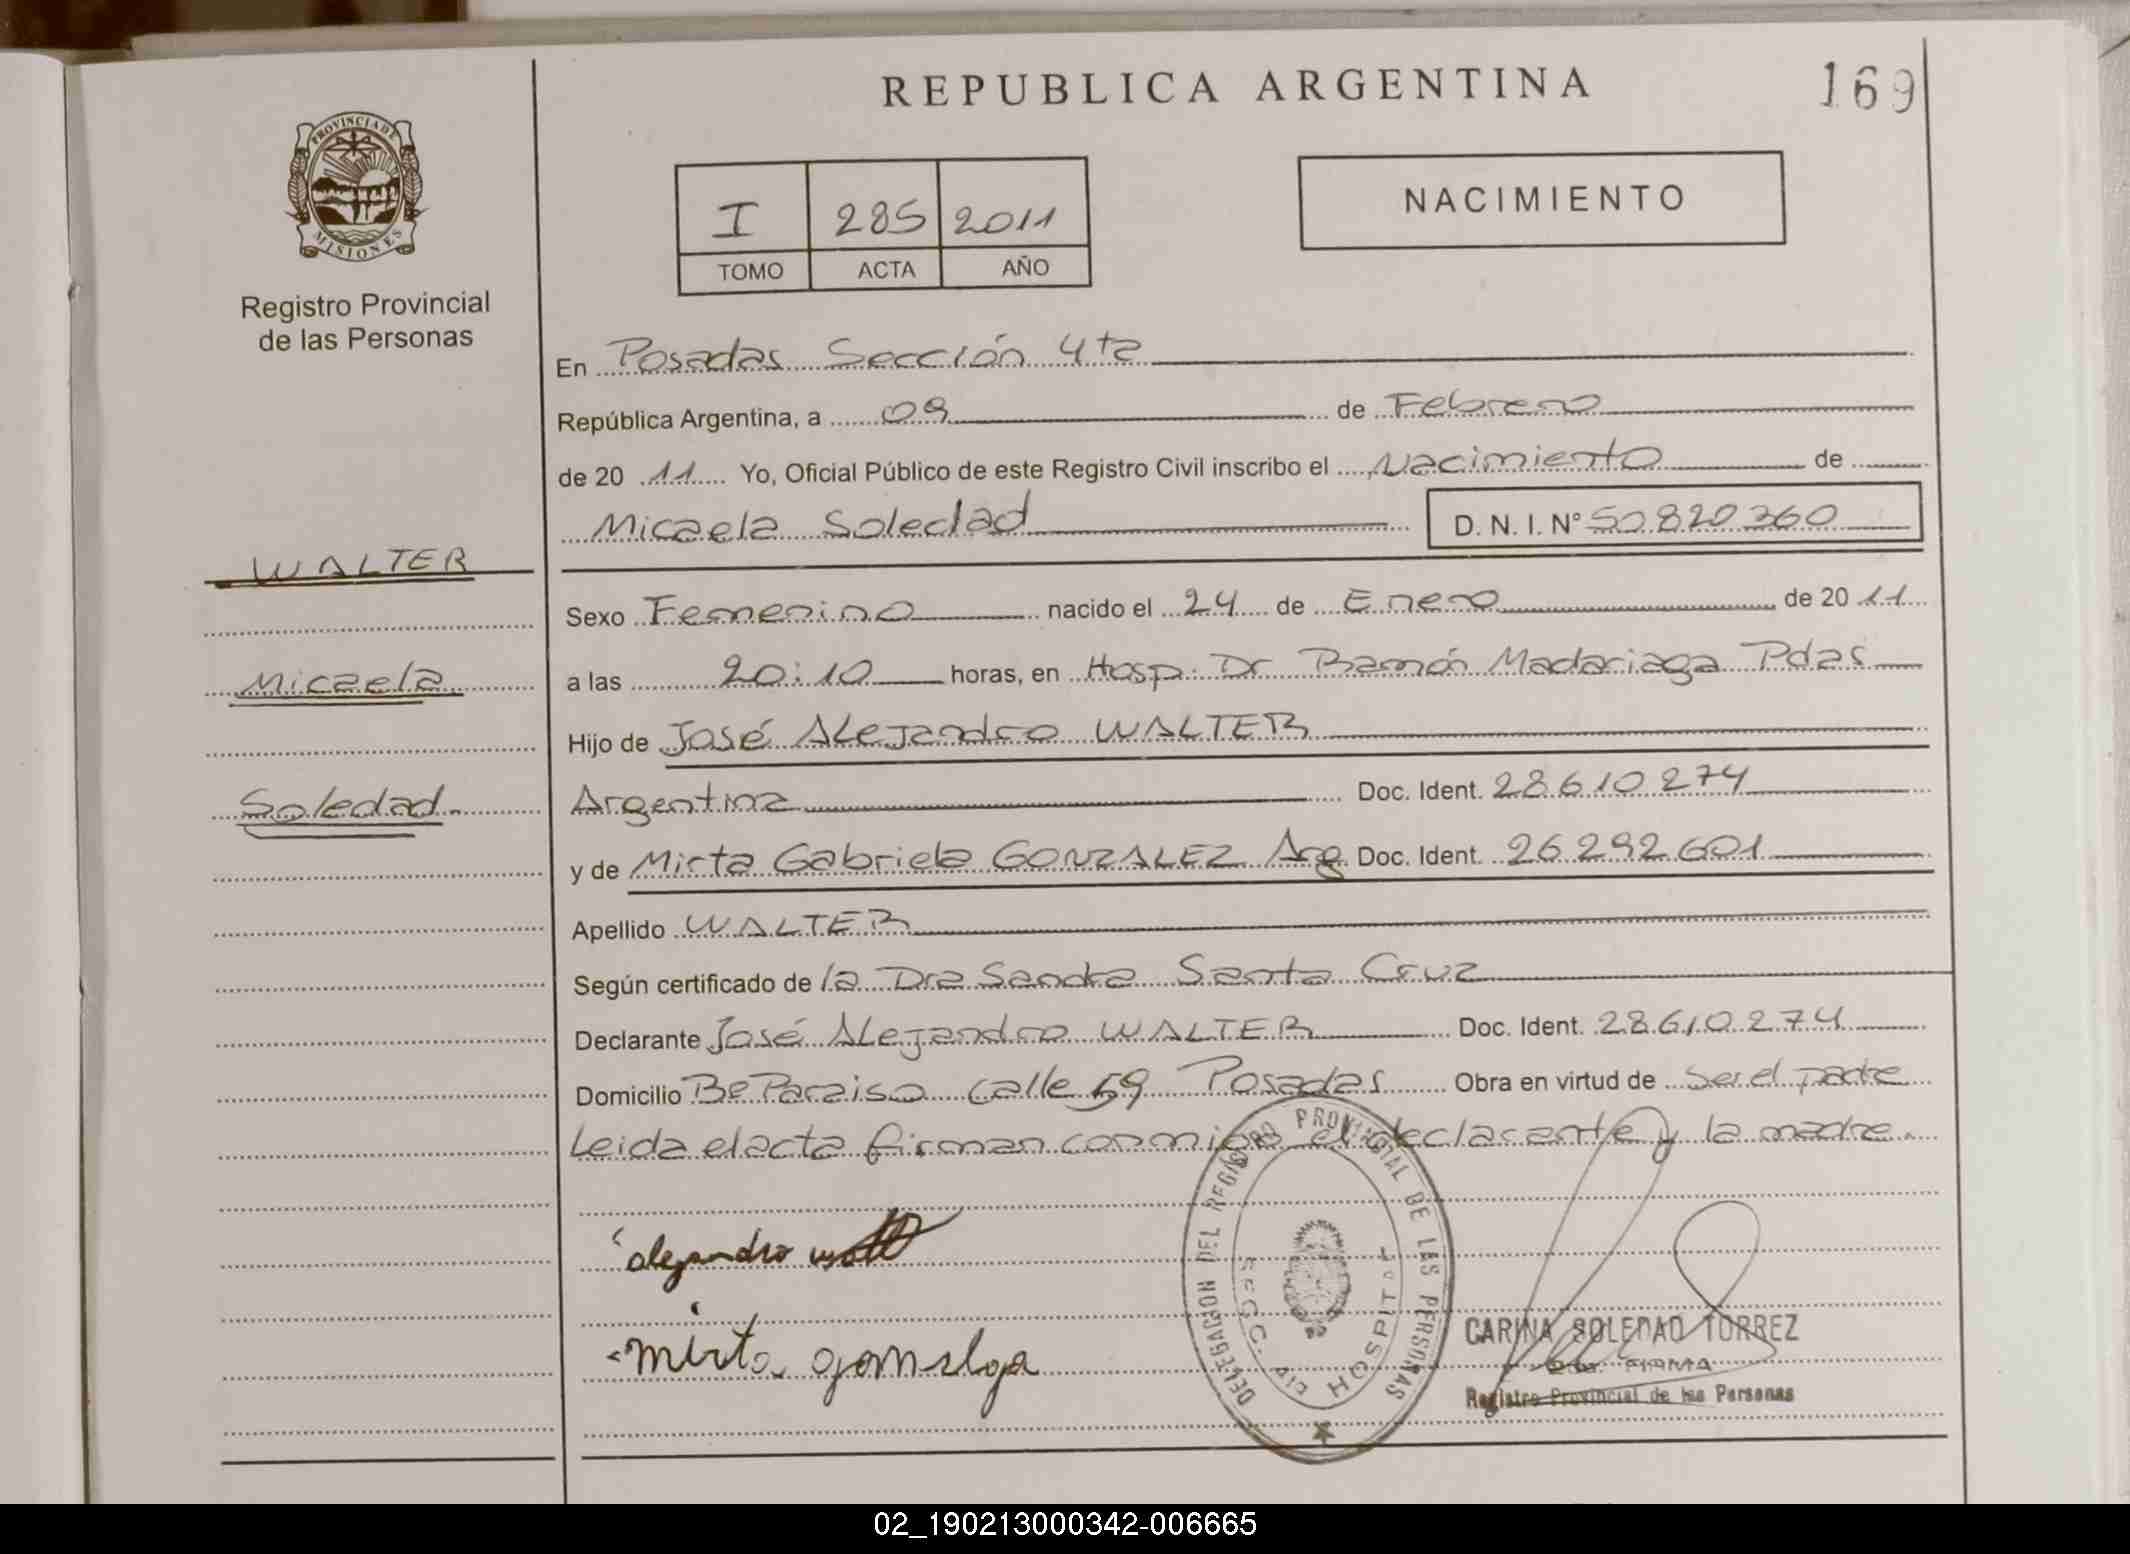 REPUBLICA ARGENTINA
169
PROVINCIA DE
MISIONES
Registro Provincial
de las Personas
I 285 2011
TOMO ACTA AÑO
NACIMIENTO
En Posadas Sección 4ta
República Argentina, a 09 de Febrero
de 20 11 Yo, Oficial Público de este Registro Civil inscribo el Nacimiento de
Micaela Soledad D. N. I. N° 50820360
WALTER
Micaela
Soledad
Sexo Femenino nacido el 24 de Enero de 20 11
a las 20:10 horas, en Hosp. Dr Ramón Madariaga Pdas
Hijo de José Alejandro WALTER
Argentina Doc. Ident. 28610274
y de Mirta Gabriela GONZALEZ Arg Doc. Ident. 26292601
Apellido WALTER
Según certificado de la Dra Sandra Santa Cruz
Declarante José Alejandro WALTER Doc. Ident. 28610274
Domicilio Bº Paraiso calle 59 Posadas Obra en virtud de Ser el padre
Leida el acta firman conmigo el declarante y la madre.
alejandro
mirta
DELEGACION DEL REGISTRO PROVINCIAL DE LAS PERSONAS
SECC. HOSPIT
CARINA SOLEDAD TORREZ
FIRMA
Registro Provincial de las Personas
02_190213000342-006665